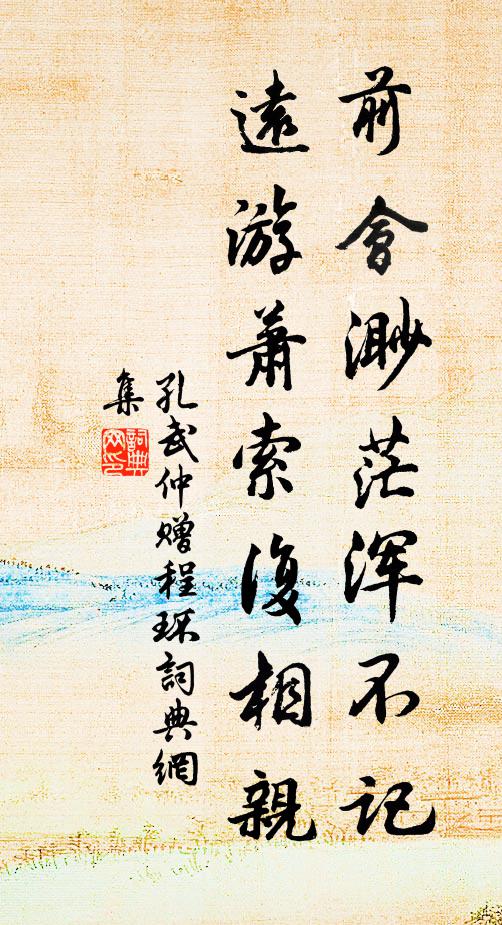 前會渺茫渾不記
遠游蕭索復相親
孔武仲贈程琛詞典網
集
詞典
网印